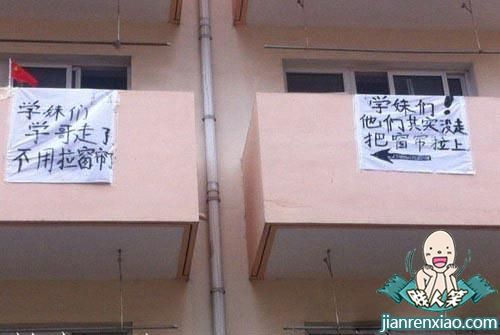 学妹们
学哥走了
不用拉窗帘
学妹们！
他们其实没走
把窗帘拉上
贱人笑
jianrenxiao.com